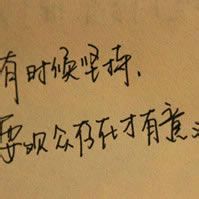 有时候坚持、
要观众存在才有意